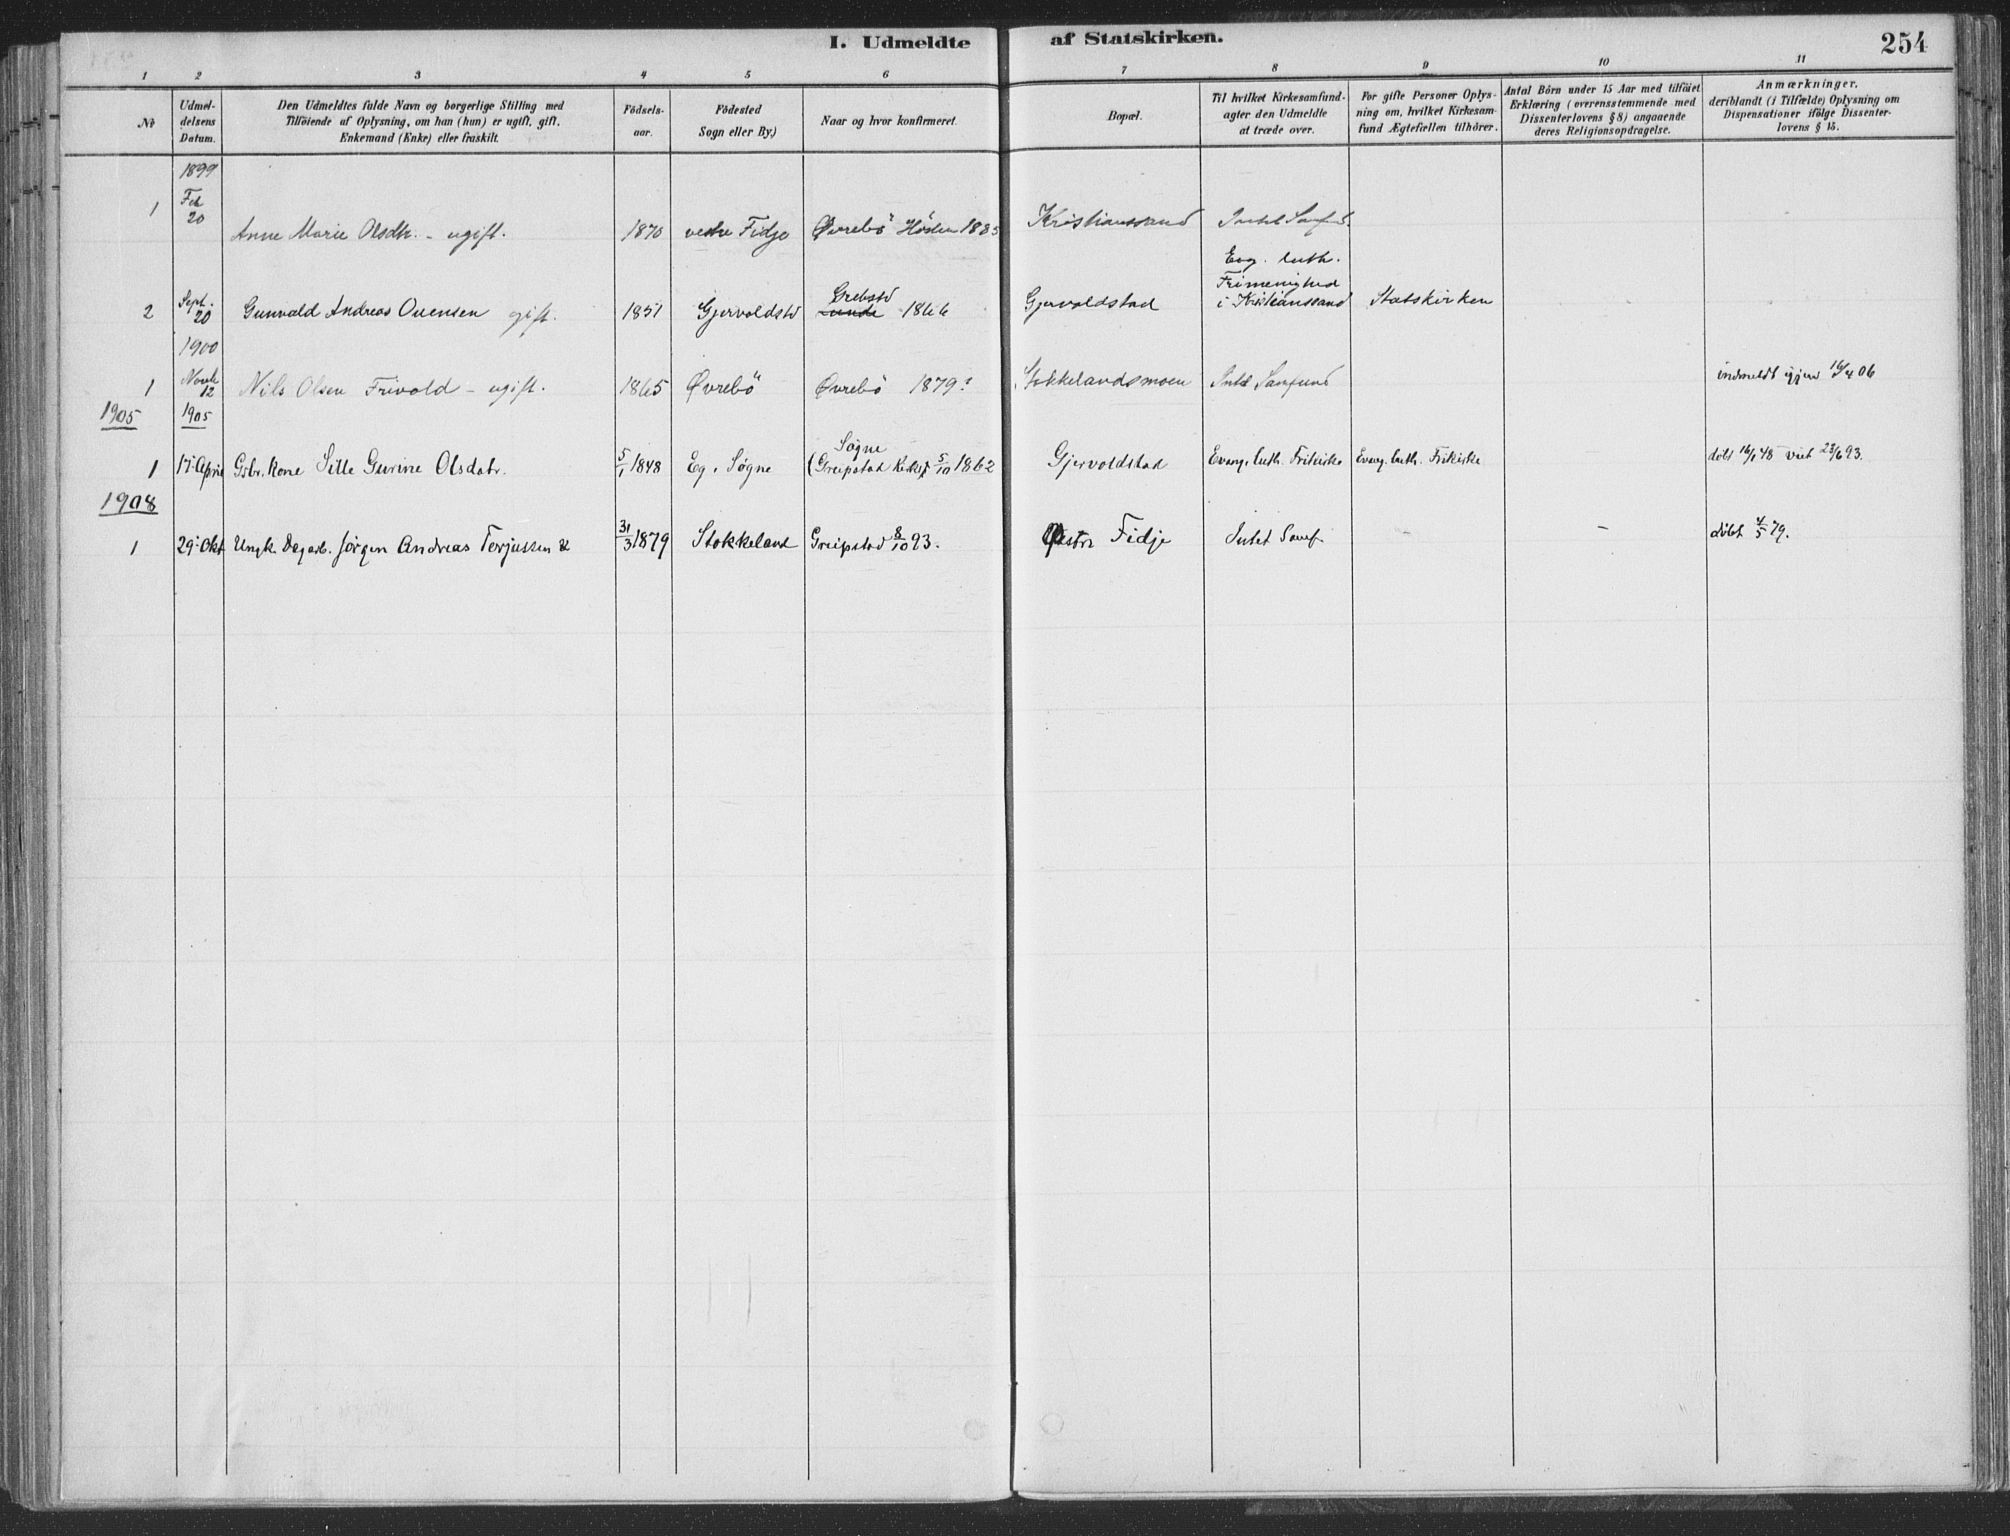 I. Udmeldte af Statskirken.
254
1 2 3 4 5 6 7 8 9 10 11
No
Udmel-
delsens
Datum.
Den Udmeldtes fulde Navn og borgerlige Stilling med
Tilföiende af Oplysning, om han (hun) er ugift, gift,
Enkemand (Enke) eller fraskilt.
Födsels-
aar.
Födested
Sogn eller By)
Naar og hvor konfirmeret.
Bopæl.
Til hvilket Kirkesamfund-
agter den Udmeldte
at træde over.
For gifte Personer Oplys-
ning om, hvilket Kirkesam-
fund Ægtefællen tilhörer.
Antal Börn under 15 Aar med tilföiet
Erklæring (overensstemmende med
Dissenterlovens § 8) angaaende
deres Religionsopdragelse.
Anmærkninger,
deriblandt (i Tilfælde) Oplysning om
Dispensationer ifölge Dissenter-
lovens § 15.
1899
1 Feb 20 Anne Marie Olsdtr. - ugift. 1870 vestre Fidje Øvrebö Hösten 1885 Kristianssand Intet Samfund.
2 Sept. 20 Gunvald Andreas Ouensen gift. 1851 Gjervoldstd Grebstd unde 1866 Gjervoldstad
Evg. luth.
Frimenighed
i Kristianssand
Statskirken
1900
1 Novb 12 Nils Olsen Frivold - ugift. 1865 Øvrebö Øvrebö 1879? Stokkelandsmoen Intet Samfund indmeldt igjen 16/4 06
1905 1905
1 17 April Gbr. kone Sille Gurine Olsdatr. 5/1 1848 Eg, Søgne Søgne
(Greipstad Kirke) 5/10 1862 Gjervoldstad Evang. luth. Frikirke Evang. luth. Frikirke døbt 16/1 48 viet 23/6 93.
1908
1 29 Okt Ungk. Dagarb. Jörgen Andreas Terjussen 31/3 1879 Stokkeland Greipstad 8/10 93. Østre Fidje Intet Samf. - döbt 4/5 79.